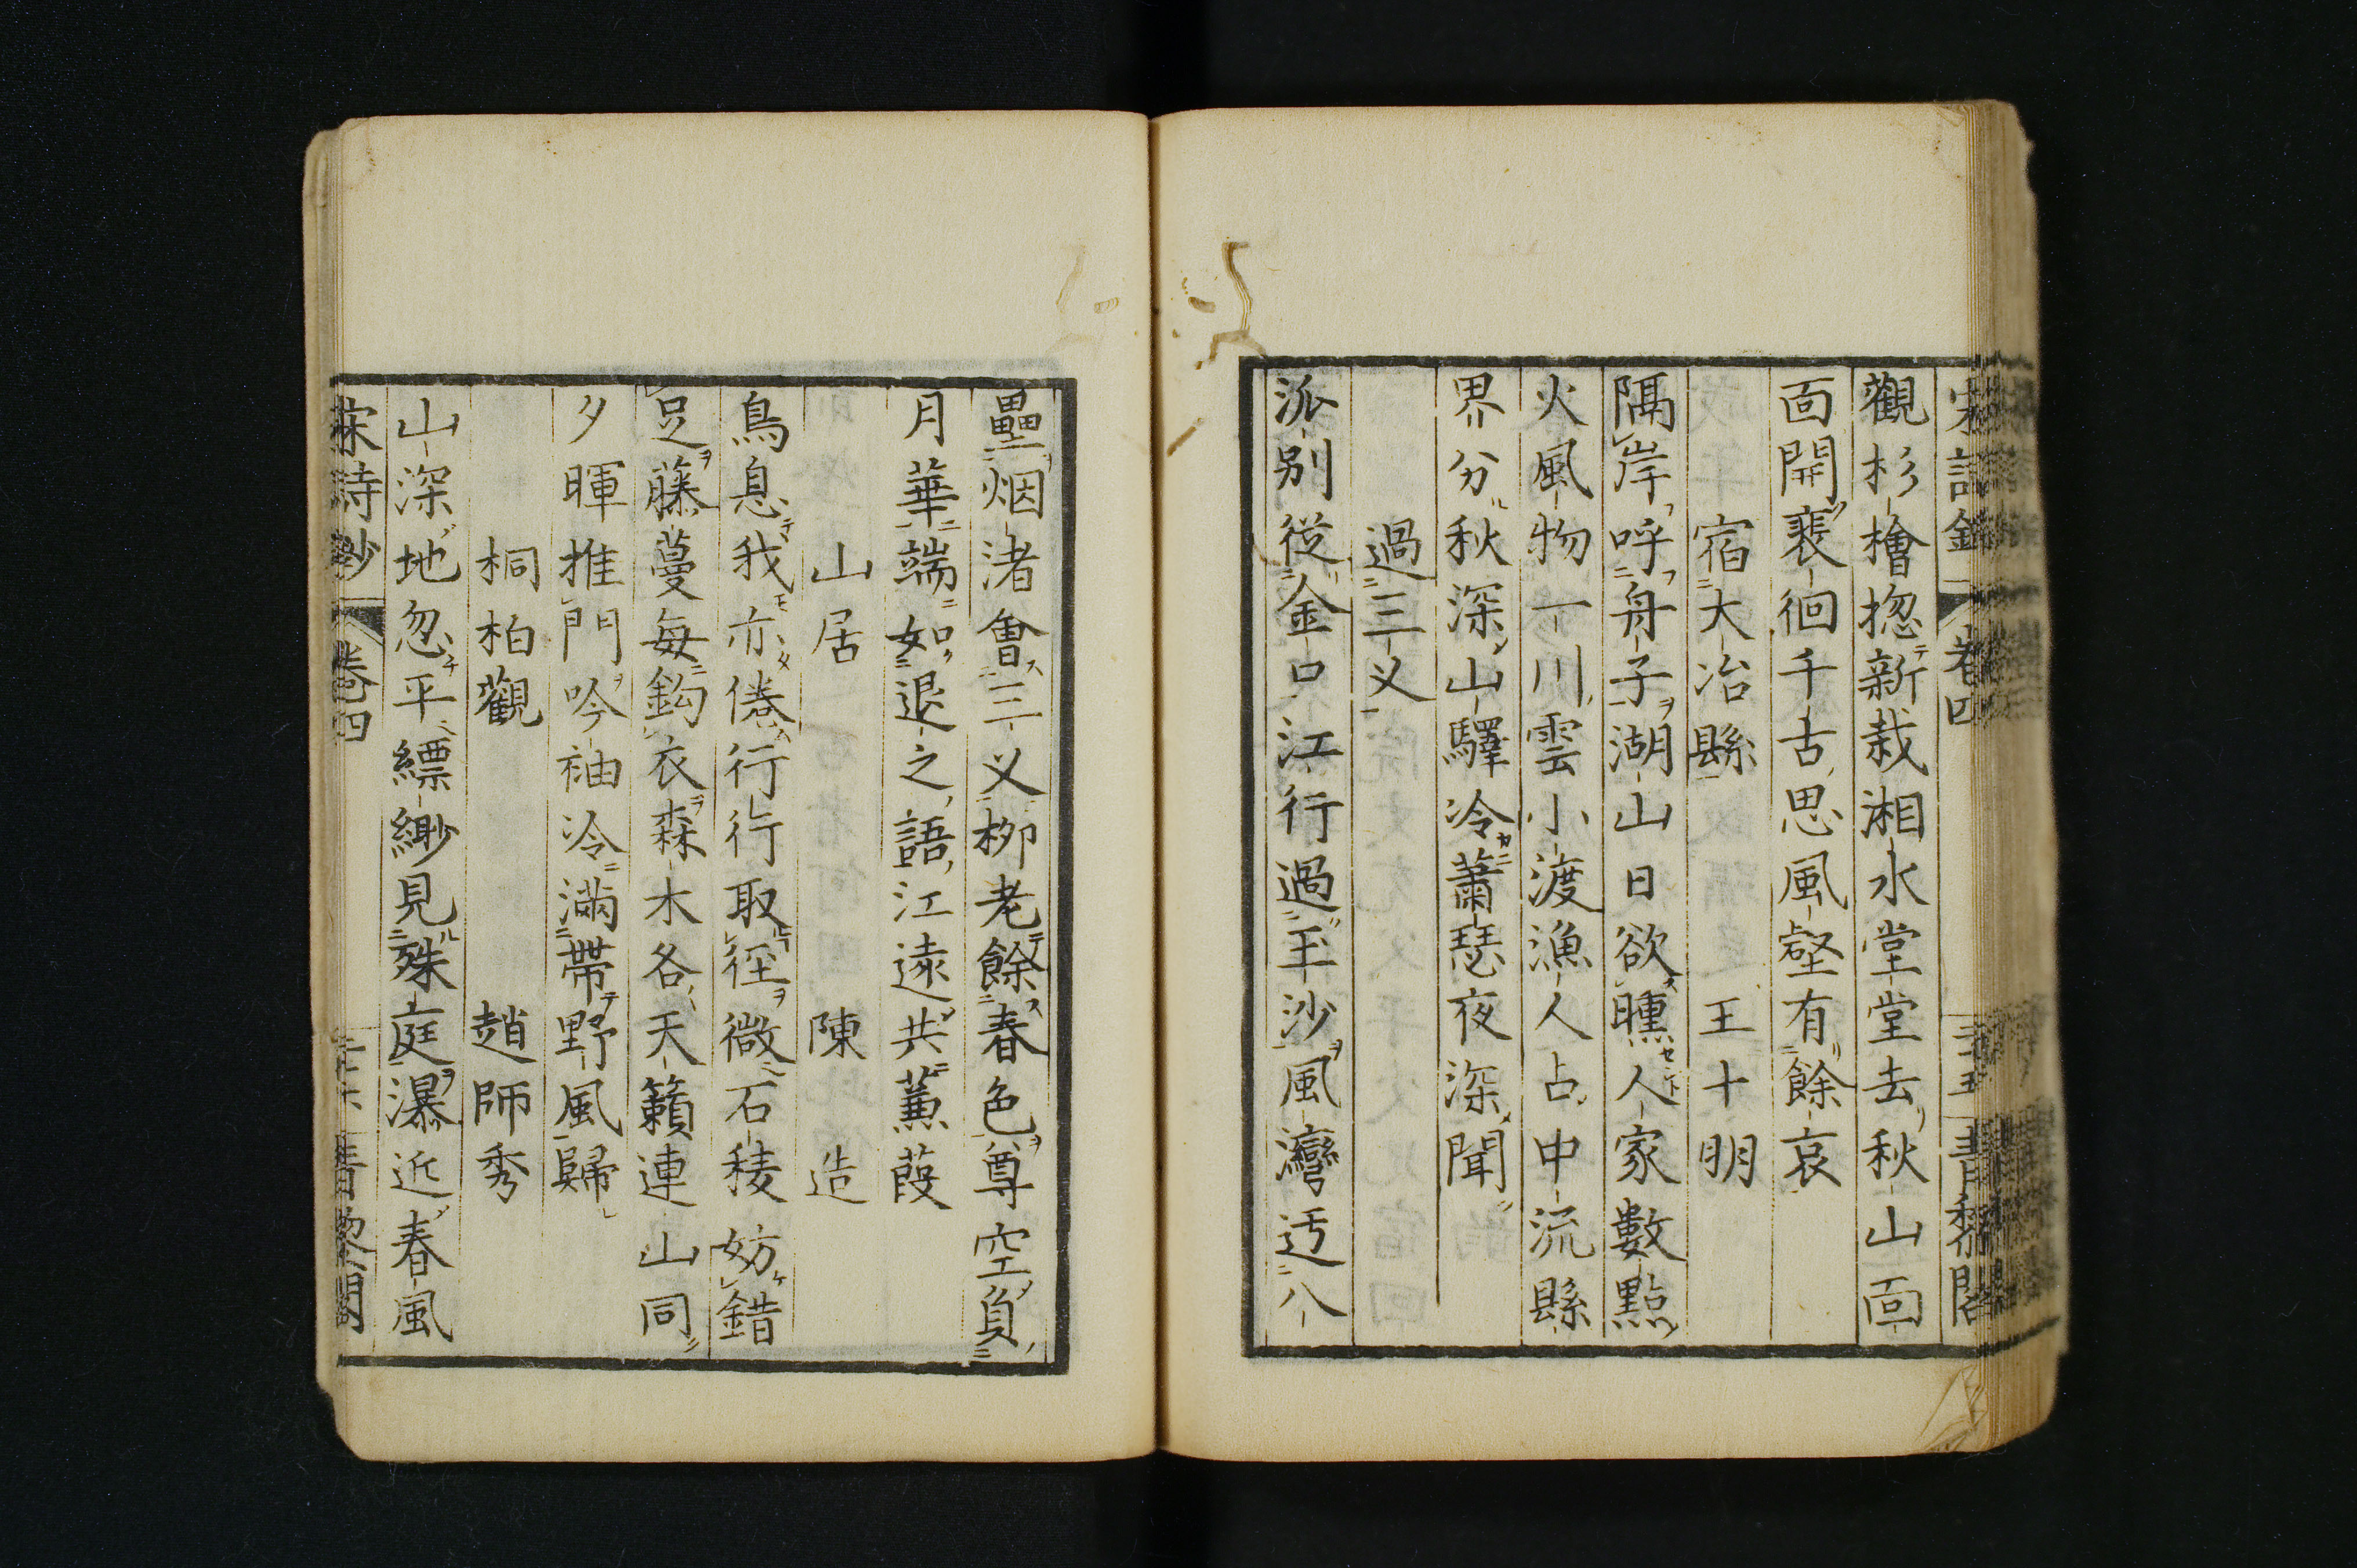 宋詩鈔 卷四 三十五 青藜閣
觀杉檜揔新栽湘水堂堂去秋山面
面開裵徊千古思風壑有餘哀
宿大冶縣 王十明
隔岸呼舟子湖山日欲曛人家數點
火風物一川雲小渡漁人占中流縣
界分秋深山驛冷蕭瑟夜深聞
過三义
派別從金口江行過玉沙風灣迃八
壘烟渚會三义柳老餘春色尊空負
月華端如退之語江遠共蒹葭
山居 陳造
鳥息我亦倦行行取徑微石稜妨錯
足藤蔓每鈎衣森木各天籟連山同
夕暉推門吟袖冷滿帶野風歸
桐柏觀 趙師秀
山深地忽平縹緲見殊庭瀑近春風
宋詩鈔 卷四 三十六 青藜閣